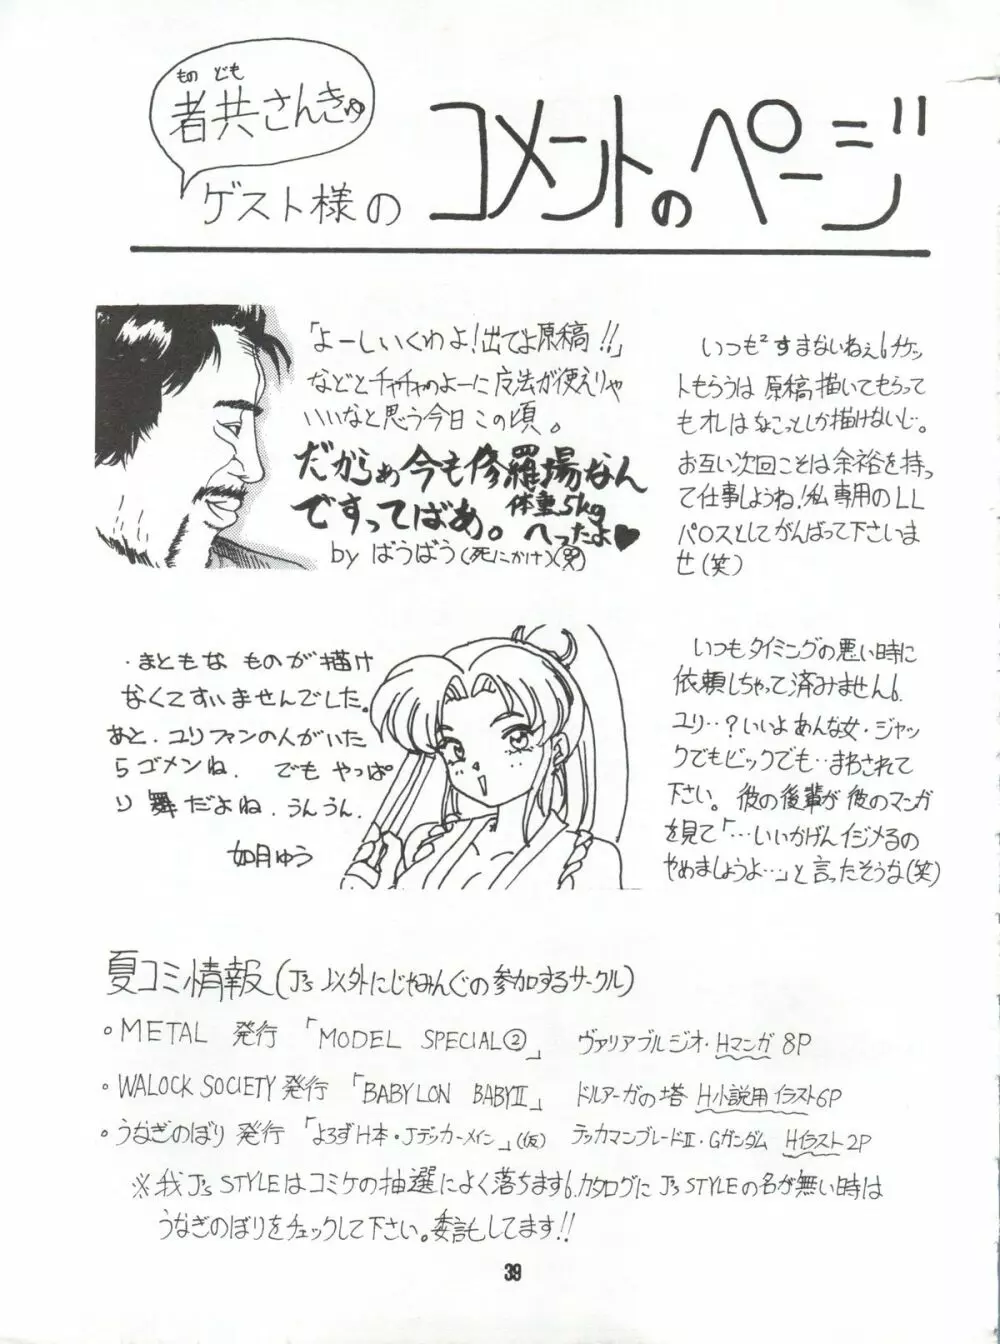 もの ども
者共さんきゅ
ゲスト様の コメントのページ
「よーしいくわよ!出でよ原稿!!」
などとチャチャのよーに魔法が使えりゃ
いいなと思う今日この頃。
だからぁ今も修羅場なん
ですってばあ。体重5kg
へったよ♥
by ばうばう(死にかけ)(男)
いつも²すまないねぇ。チケッ
トもらうは原稿描いてもらって
もオレはなこっとしか描けないし。
お互い次回こそは余裕を持っ
て仕事しようね!私専用のLL
パロスとしてがんばって下さいま
せ(笑)
・まともな ものが描け
なくてすいませんでした。
あと、ユリファンの人がいた
らゴメンね、 でも やっぱ
り 舞だよね、うんうん。
如月ゆう
いつもタイミングの悪い時に
依頼しちゃって済みません。
ユリ‥?いいよあんな女・ジャッ
クでもビックでも‥まわされて
下さい。彼の後輩が彼のマンガ
を見て「…いいかげんイジメるの
やめましょうよ…」と言ったそうな(笑)
夏コミ情報(J's以外にじゃみんぐの参加するサークル)
○METAL 発行 「MODEL SPECIAL②」 ヴァリアブルジオ・Hマンガ 8P
○WALOCK SOCIETY発行 「BABYLON BABYⅡ」 ドルアーガの塔 H小説用イラスト6P
○うなぎのぼり 発行 「よろずH本・Jデッカーメイン」(仮) テッカマンブレードⅡ・Gガンダム Hイラスト2P
※我J's STYLEはコミケの抽選によく落ちます。カタログにJ's STYLEの名が無い時は
うなぎのぼりをチェックして下さい。委託してます!!
39